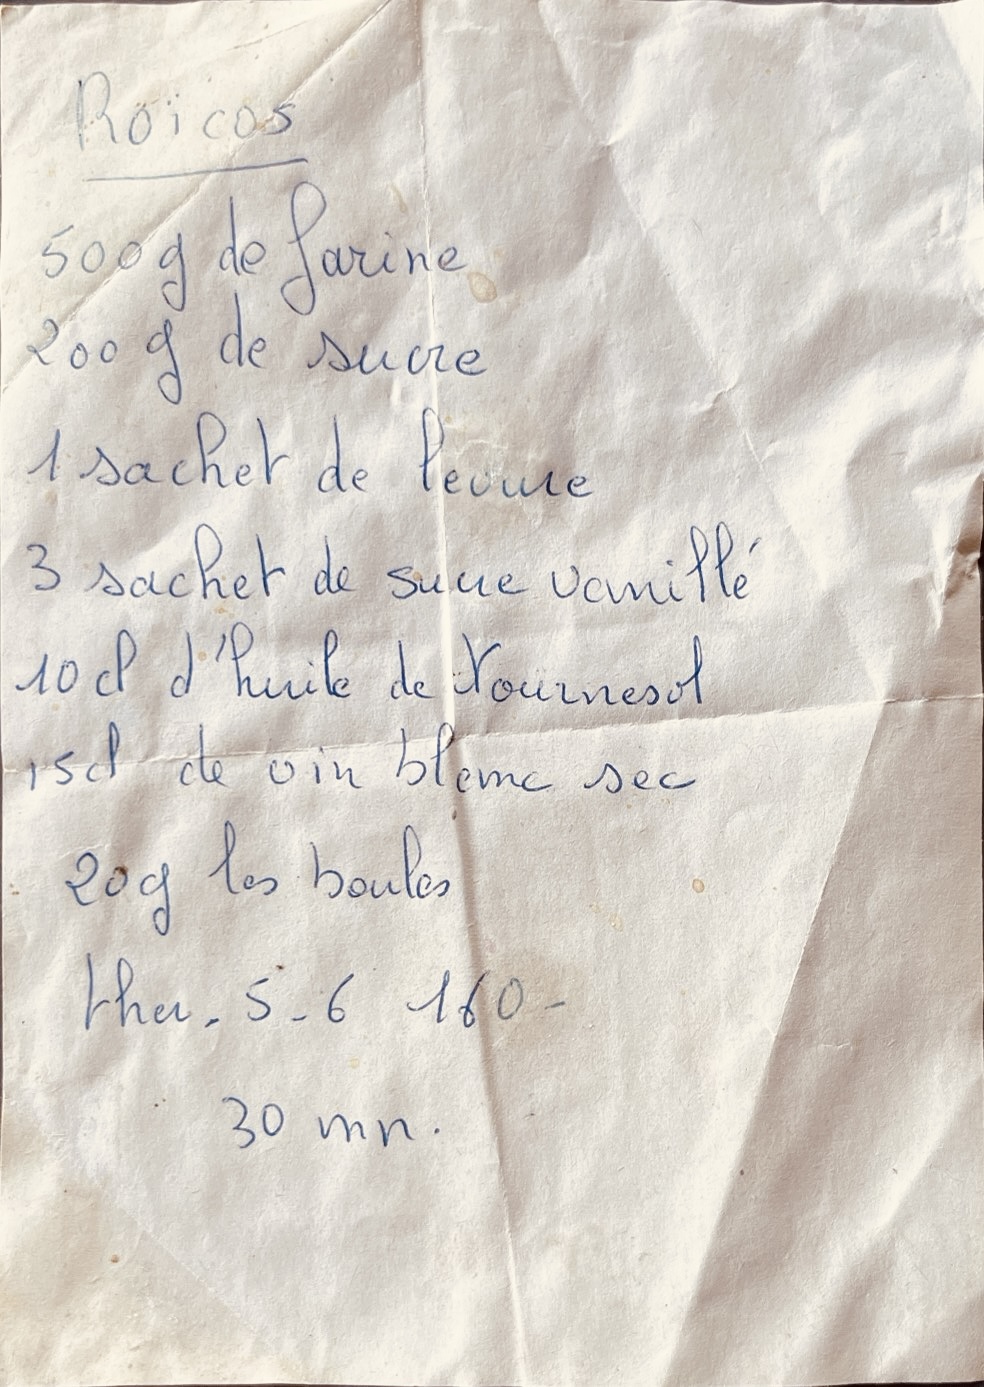 Roïcos
500g de farine
200g de sucre
1 sachet de levure
3 sachet de sucre vanillé
10 cl d'huile de tournesol
15cl de vin blanc sec
20g les boules
ther. 5-6 160-
30 mn.